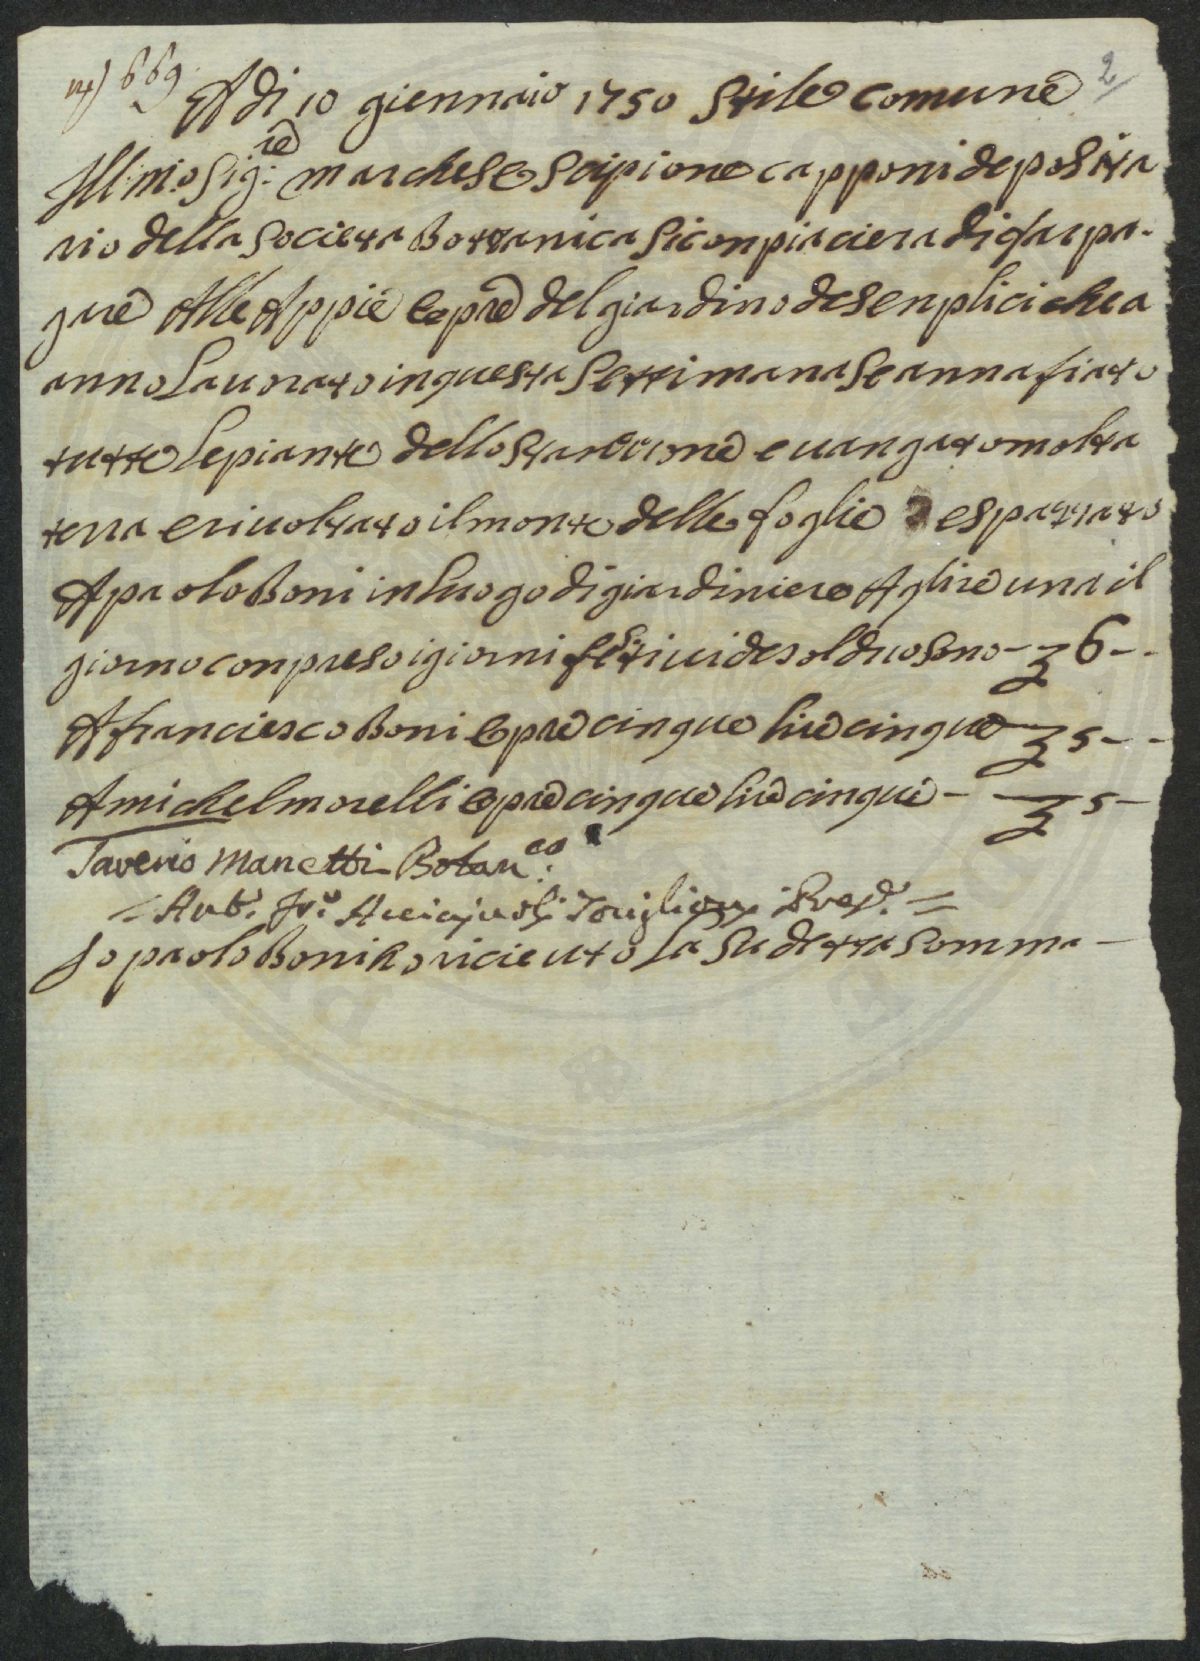 n) 669
2
A di 10 giennaio 1750 Stile comune
Ill:mo Sig:re marchese Scipione capponi deposita
rio della Societa Bottanica Si conpiaciera di far pa
gare Alle Appie opre del giardino de Senplici che a
anno Lauorato in questa Settimana Se annafiato
tutte Le piante dello Stanzone e uangato molta
terra e riuoltato il monte delle foglie e spazzato
A paolo Boni in Luogo di giardiniere A lire una il
giorno conpreso i giorni festiui de sol duo Sono - 6 - -
A franciesco Boni opre cinque lire cinque 5 - -
A michel morelli opre cinque lire cinque - 5 -
Saverio Manetti Botan:co
= Ant. Fr. Acciajuoli Torigliani Pres. =
Io paolo Boni ho riceuto La Su detta Somma -